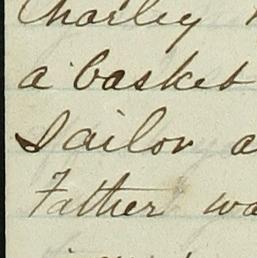 Charley
a basket
Sailor a
Father wa